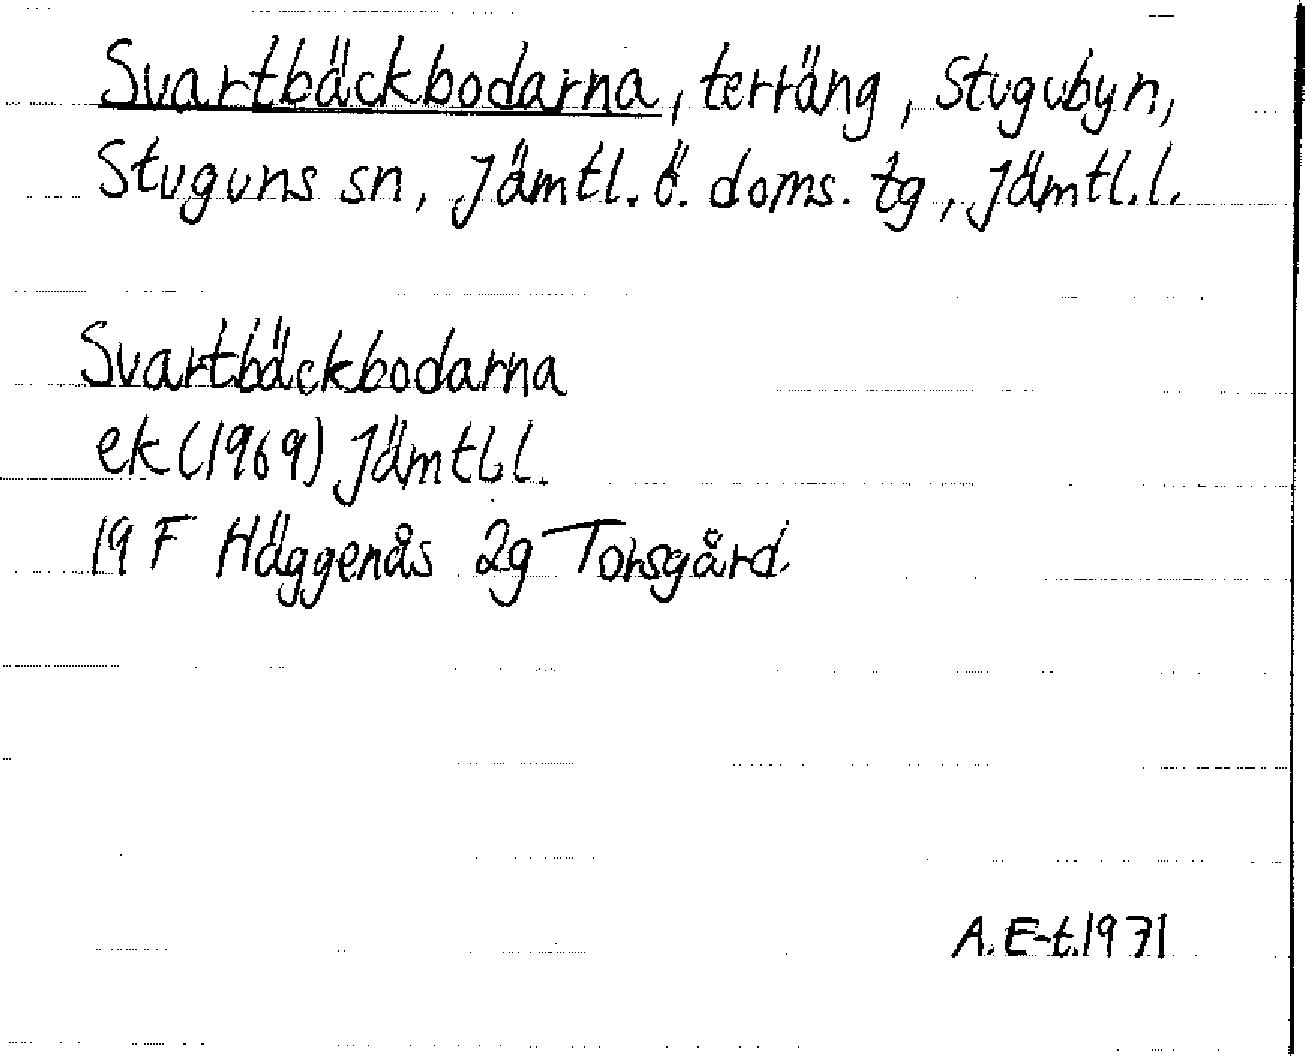 Svartbäckbodarna, terräng, Stugubyn,
Stuguns sn, Jämtl. ö. doms. tg, Jämtl. l.
Svartbäckbodarna
ek (1969) Jämtl. l.
19 F Häggenås 2g Torsgård
A. E-t. 1971